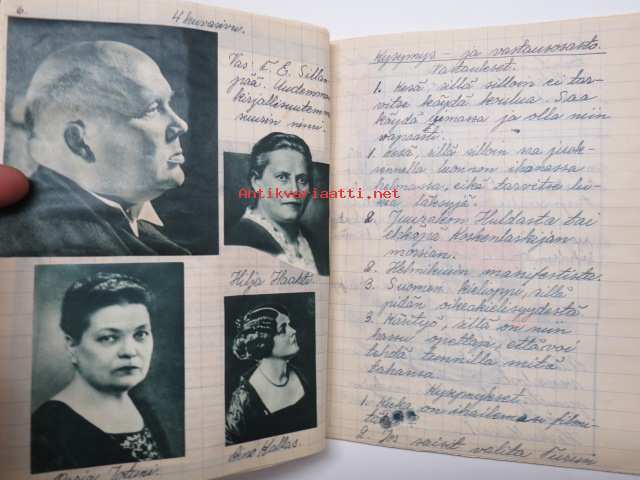 6.
4 kuvasivu.
Vas. F. E. Sillan
pää. Uudemman
kirjallisuutemme
suurin nimi.
Antikvariaatti.net
Hilja Haahti.
Maria Jotuni.
Aino Kallas
Kysymys- ja vastausosasto.
Vastaukset.
1. Kesä, sillä silloin ei tar-
vitse käydä koulua. Saa
käydä uimassa ja olla niin
vapaasti.
1. Kesä, sillä silloin saa juos-
nella luonnon ihanassa
helmassa, eikä tarvitse lu-
kea läksyjä.
2. Juurakon Huldasta tai
ehkäpä Koskenlaskijan
morsian.
2. Helmikuun manifestista.
3. Suomen kielioppi, sillä
pidän oikeakielisyydestä
3. Käsityö, sillä on niin
hassu opettaja, että voi
tehdä tunnilla mitä
tahansa.
Kysymykset.
1. Kuka on ihailemasi filmi-
tähti
2. Jos saisit valita